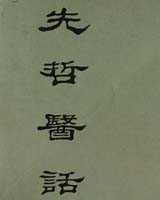 先哲醫話